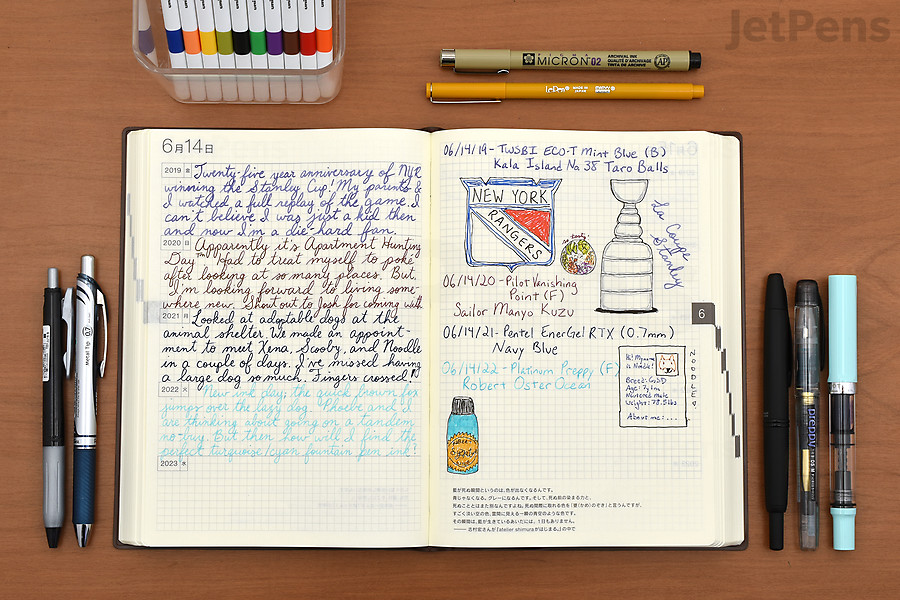 JetPens
PIGMA
MICRON 02
ARCHIVAL INK
QUALITÉ D'ARCHIVAGE
TINTA DE ARCHIVE
AP
LePen
MADE IN JAPAN
6月14日
2019 金
Twenty-five year anniversary of NYR
winning the Stanley Cup! My parents &
I watched a full replay of the game. I
can't believe I was just a kid then
and now I'm a die-hard fan.
2020 日
Apparently it's Apartment Hunting
Day™ Had to treat myself to poke
after looking at so many places. But
I'm looking forward to living some-
where new. Shout out to Josh for coming with
2021 月
Looked at adoptable dogs at the
animal shelter. We made an appoint-
ment to meet Xena, Scooby, and Noodle
in a couple of days. I've missed having
a large dog so much. Fingers crossed!
2022 火
New ink day, the quick brown fox
jumps over the lazy dog. Phoebe and I
are thinking about going on a tandem
no-buy. But then how will I find the
perfect turquoise/cyan fountain pen ink!
2023 水
06/14/19- TWSBI ECO-T Mint Blue (B)
Kala Island No 38 Taro Balls
NEW YORK
RANGERS
so tasty
La Coupe
Stanley
06/14/20 - Pilot Vanishing
Point (F)
Sailor Manyo Kuzu
06/14/21- Pentel EnerGel RTX (0.7mm)
Navy Blue
06/14/22 - Platinum Preppy (F)
Robert Oster Ocean
Hi! My name
is Noodle!
Breed: GSD
Age: 7yrs
Neutered male
Weight: 78.5lbs
About me: ...
NOODLE
6
藍が死ぬ瞬間というのは、色が出なくなるんです。
青じゃなくなる。グレーになるんです。そして、死ぬ前の染まる力と、
死ぬこととはまた別なんですよね。死ぬ間際に取れる色を「甕(かめ)のぞき」と言うんですが、
すごく淡い空の色、雲間に見える一瞬の青空のような色です。
その瞬間は、藍が生きているあいだには、1日もありません。
preppy
Metal Tip 0.7